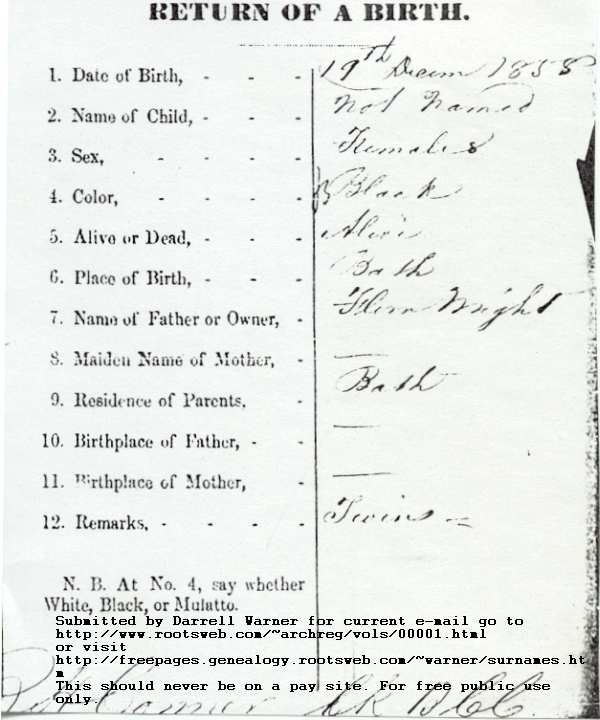 RETURN OF A BIRTH.
1. Date of Birth, - - - 19th Decem 1858
2. Name of Child, - - - Not Named
3. Sex, - - - - Females
4. Color, - - - - Black
5. Alive or Dead, - - - Alive
6. Place of Birth, - - - Bath
7. Name of Father or Owner, - Wright
8. Maiden Name of Mother, - —
9. Residence of Parents, - Bath
10. Birthplace of Father, - - —
11. Birthplace of Mother, - —
12. Remarks, - - - - Twins —
N. B. At No. 4, say whether
White, Black, or Mulatto.
Submitted by Darrell Warner for current e-mail go to
http://www.rootsweb.com/~archreg/vols/00001.html
or visit
http://freepages.genealogy.rootsweb.com/~warner/surnames.ht
m
This should never be on a pay site. For free public use
only.
Ck B C C